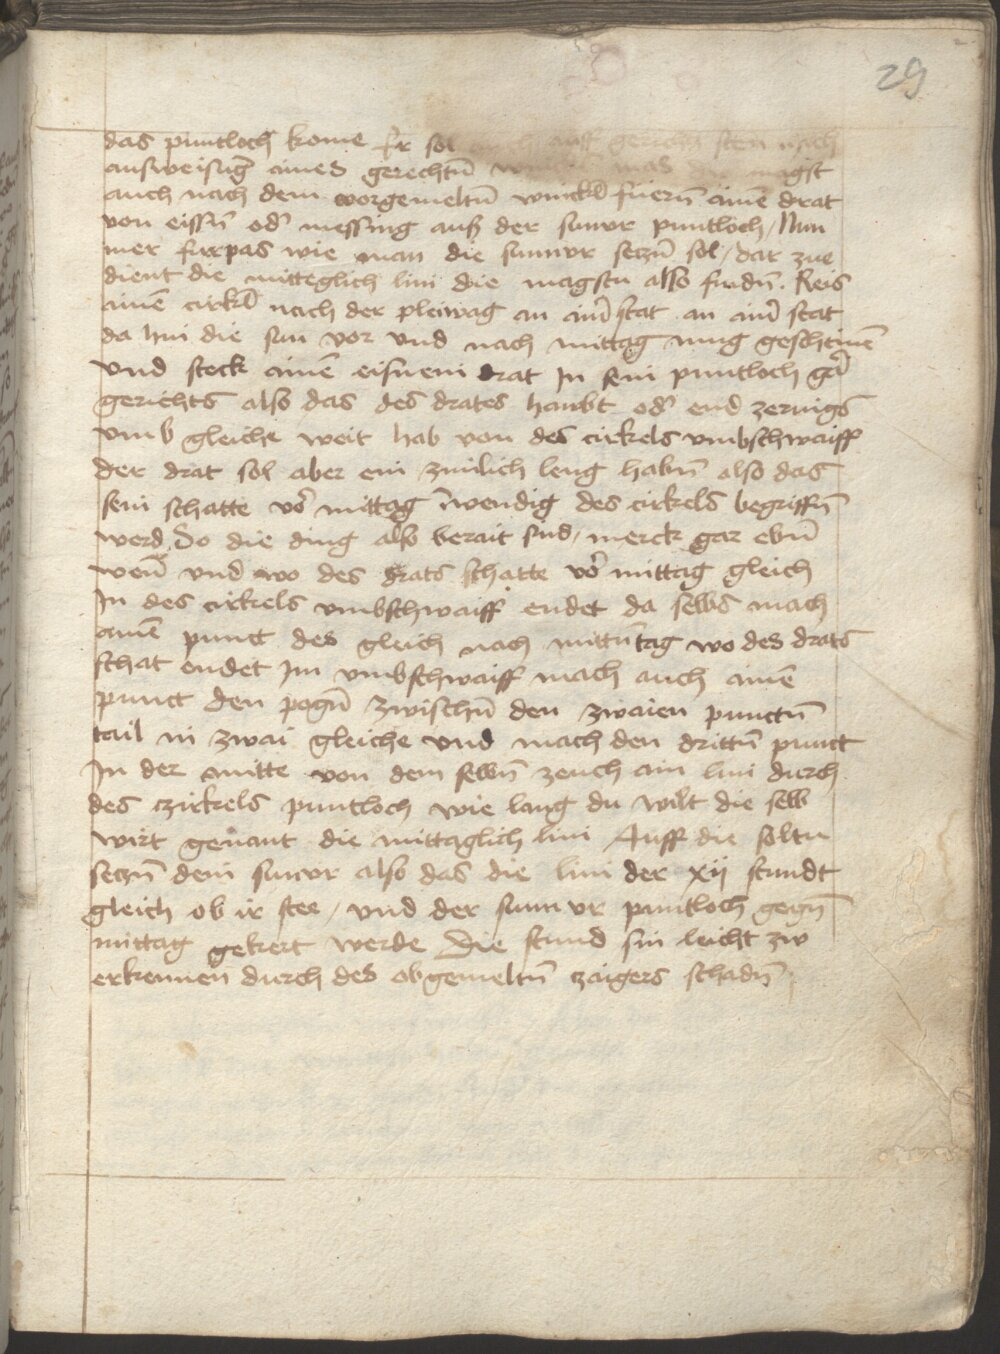 29
das puntloch kome Er sol auch auff gericht sten nach
ausweisūg aines gerechtn̄ was magst
auch nach dem vorgemeltn̄ winckl fuern̄ ainē drat
von eissn̄ od' messing auß der sunvr puntloch / Nun
mer furpas wie man die sunvor seczn̄ sol / dar zue
dient die mitteglich lini die magstu also findn̄. Reis
ainē cirkl nach der pleiwag an ainē stat an ainē stat
da hin die sun vor vnd nach mittag mug gescheinē
Vnd steck ainē eisnein drat In sein puntloch gār
gerichts also das des drates haubt od' end zeringß
vmb gleiche weit hab von des cirkels vmbschwaiff
der drat sol aber ein zimlich leng habn̄ also das
sein schatte vō mittag īwendig des cirkels begriffn̄
werd So die ding also berait sind / merck gar ebn̄
wen̄ vnd wo des drats schatte vō mittag gleich
In des cirkels vmbschwaiff endet da selbs mach
ainē punct des gleich nach mittn̄tag wo des drats
schat endet Im vmbschwaiff mach auch ainē
punct den pogn̄ zwischn̄ den zwaien punctn̄
tail in zwai gleiche vnd mach den drittn̄ punct
In der mitte von dem selbn̄ zeuch ain lini durch
des czirkels puntloch wie lang du wilt die selb
wirt genant die mittaglich lini Auff die soltu
seczn̄ dein sunvor also das die lini der xij stundt
gleich ob ir stee / vnd der sunn vr puntloch gegn̄
mittag gekert werde Die stund sin leicht zw
erkennen durch des obgemeltn̄ czaigers schadn̄